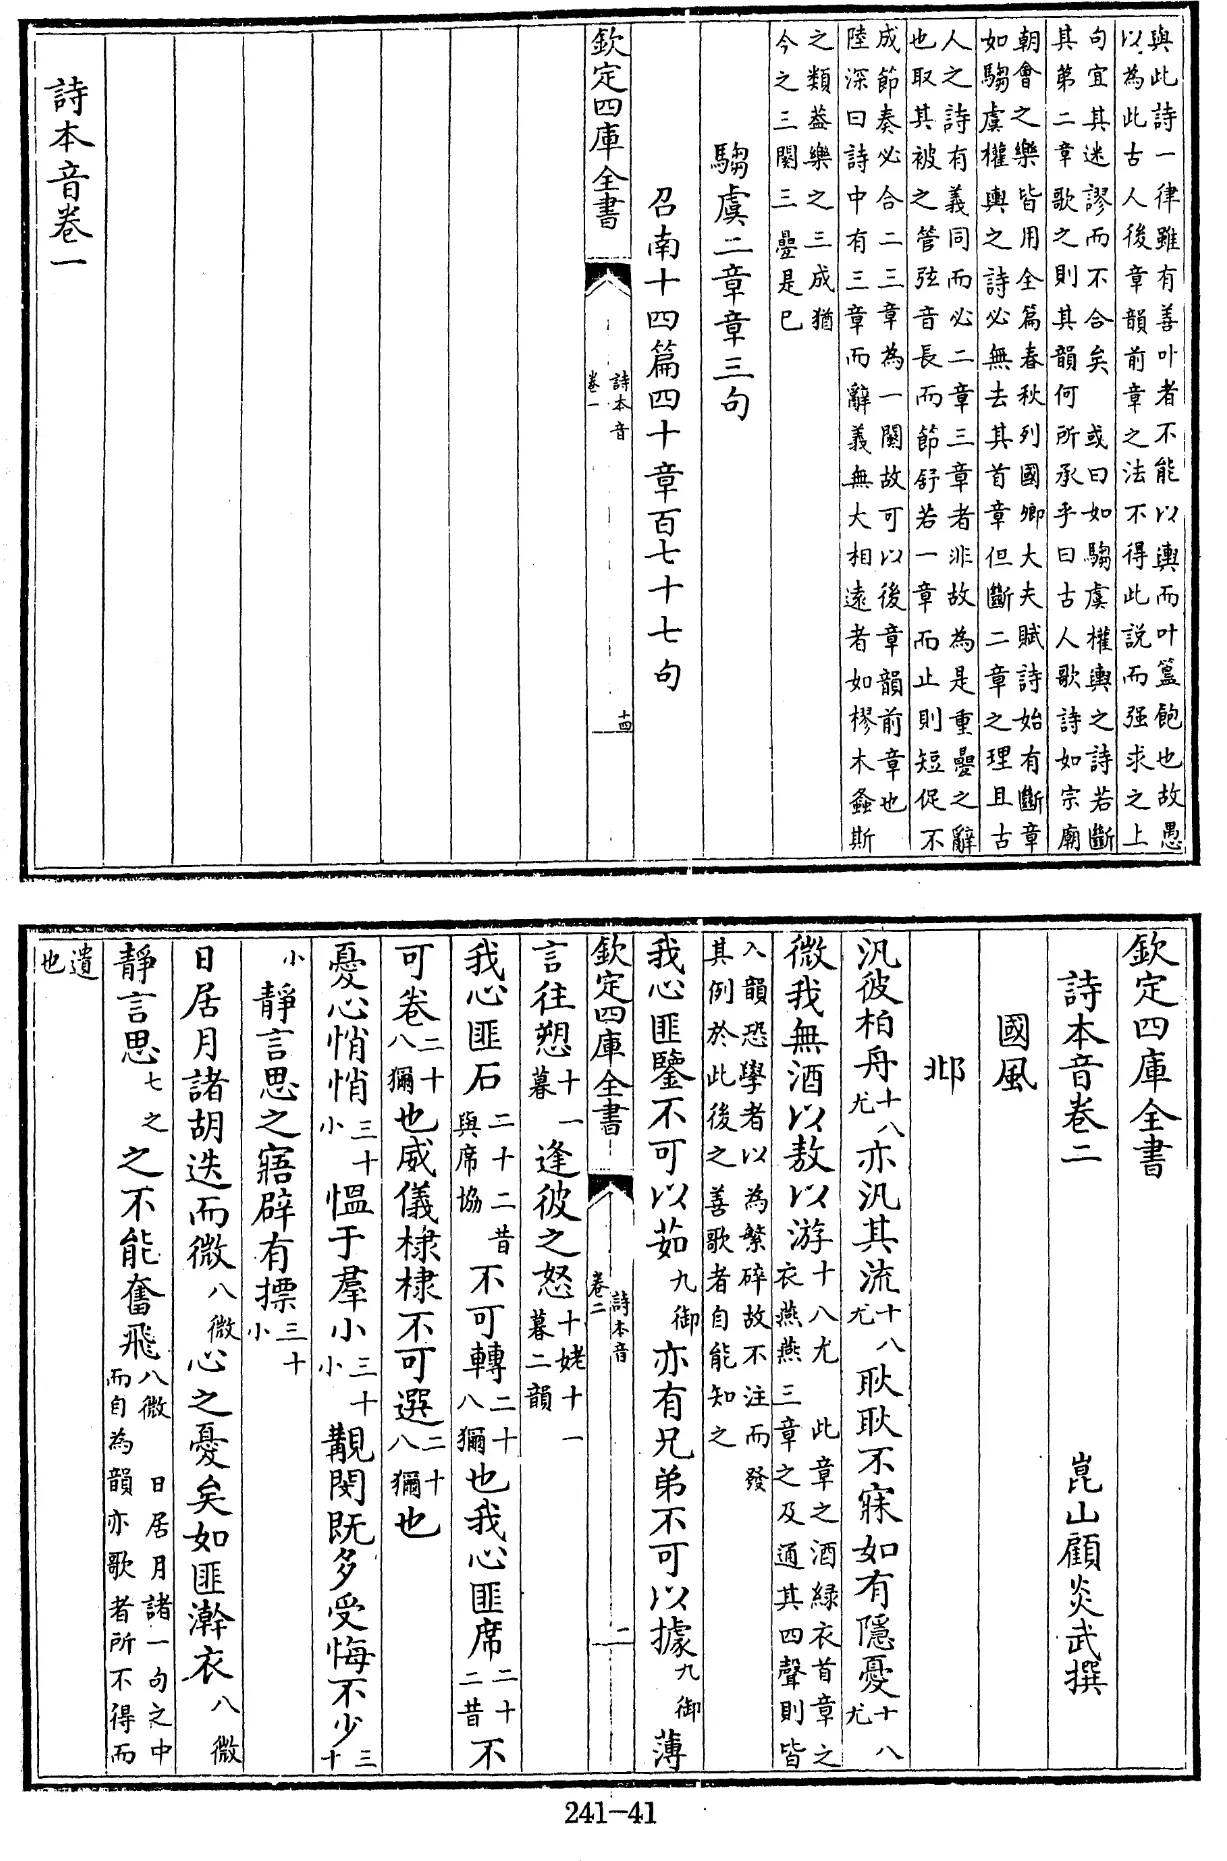 與此詩一律雖有善叶者不能以輿而叶簋飽也故愚
以為此古人後章韻前章之法不得此説而强求之上
句宜其迷謬而不合矣　或曰如騶虞權輿之詩若斷
其第二章歌之則其韻何所承乎曰古人歌詩如宗廟
朝會之樂皆用全篇春秋列國卿大夫賦詩始有斷章
如騶虞權輿之詩必無去其首章但斷二章之理且古
人之詩有義同而必二章三章者非故為是重疊之辭
也取其被之管弦音長而節舒若一章而止則短促不
成節奏必合二三章為一闋故可以後章韻前章也
陸深曰詩中有三章而辭義無大相遠者如樛木螽斯
之類葢樂之三成猶
今之三闋三疊是已
騶虞二章章三句
召南十四篇四十章百七十七句
欽定四庫全書
詩本音
卷一
十四
詩本音卷一
欽定四庫全書
詩本音卷二
崑山顧炎武撰
國風
邶
汎彼柏舟十八尤亦汎其流十八尤耿耿不寐如有隱憂十八尤
微我無酒以敖以游十八尤　此章之酒綠衣首章之衣燕燕三章之及通其四聲則皆
入韻恐學者以為繁碎故不注而發
其例於此後之善歌者自能知之
我心匪鑒不可以茹九御亦有兄弟不可以據九御薄
欽定四庫全書
詩本音
卷二
二
言往愬十一暮逢彼之怒十姥十一暮二韻
我心匪石二十二昔與席協不可轉二十八獮也我心匪席二十二昔不
可卷二十八獮也威儀棣棣不可選二十八獮也
憂心悄悄三十小愠于羣小三十小覯閔既多受侮不少三十
小靜言思之寤辟有摽三十小
日居月諸胡迭而微八微心之憂矣如匪澣衣八微
靜言思七之之不能奮飛八微　日居月諸一句之中而自為韻亦歌者所不得而
遺也
241-41